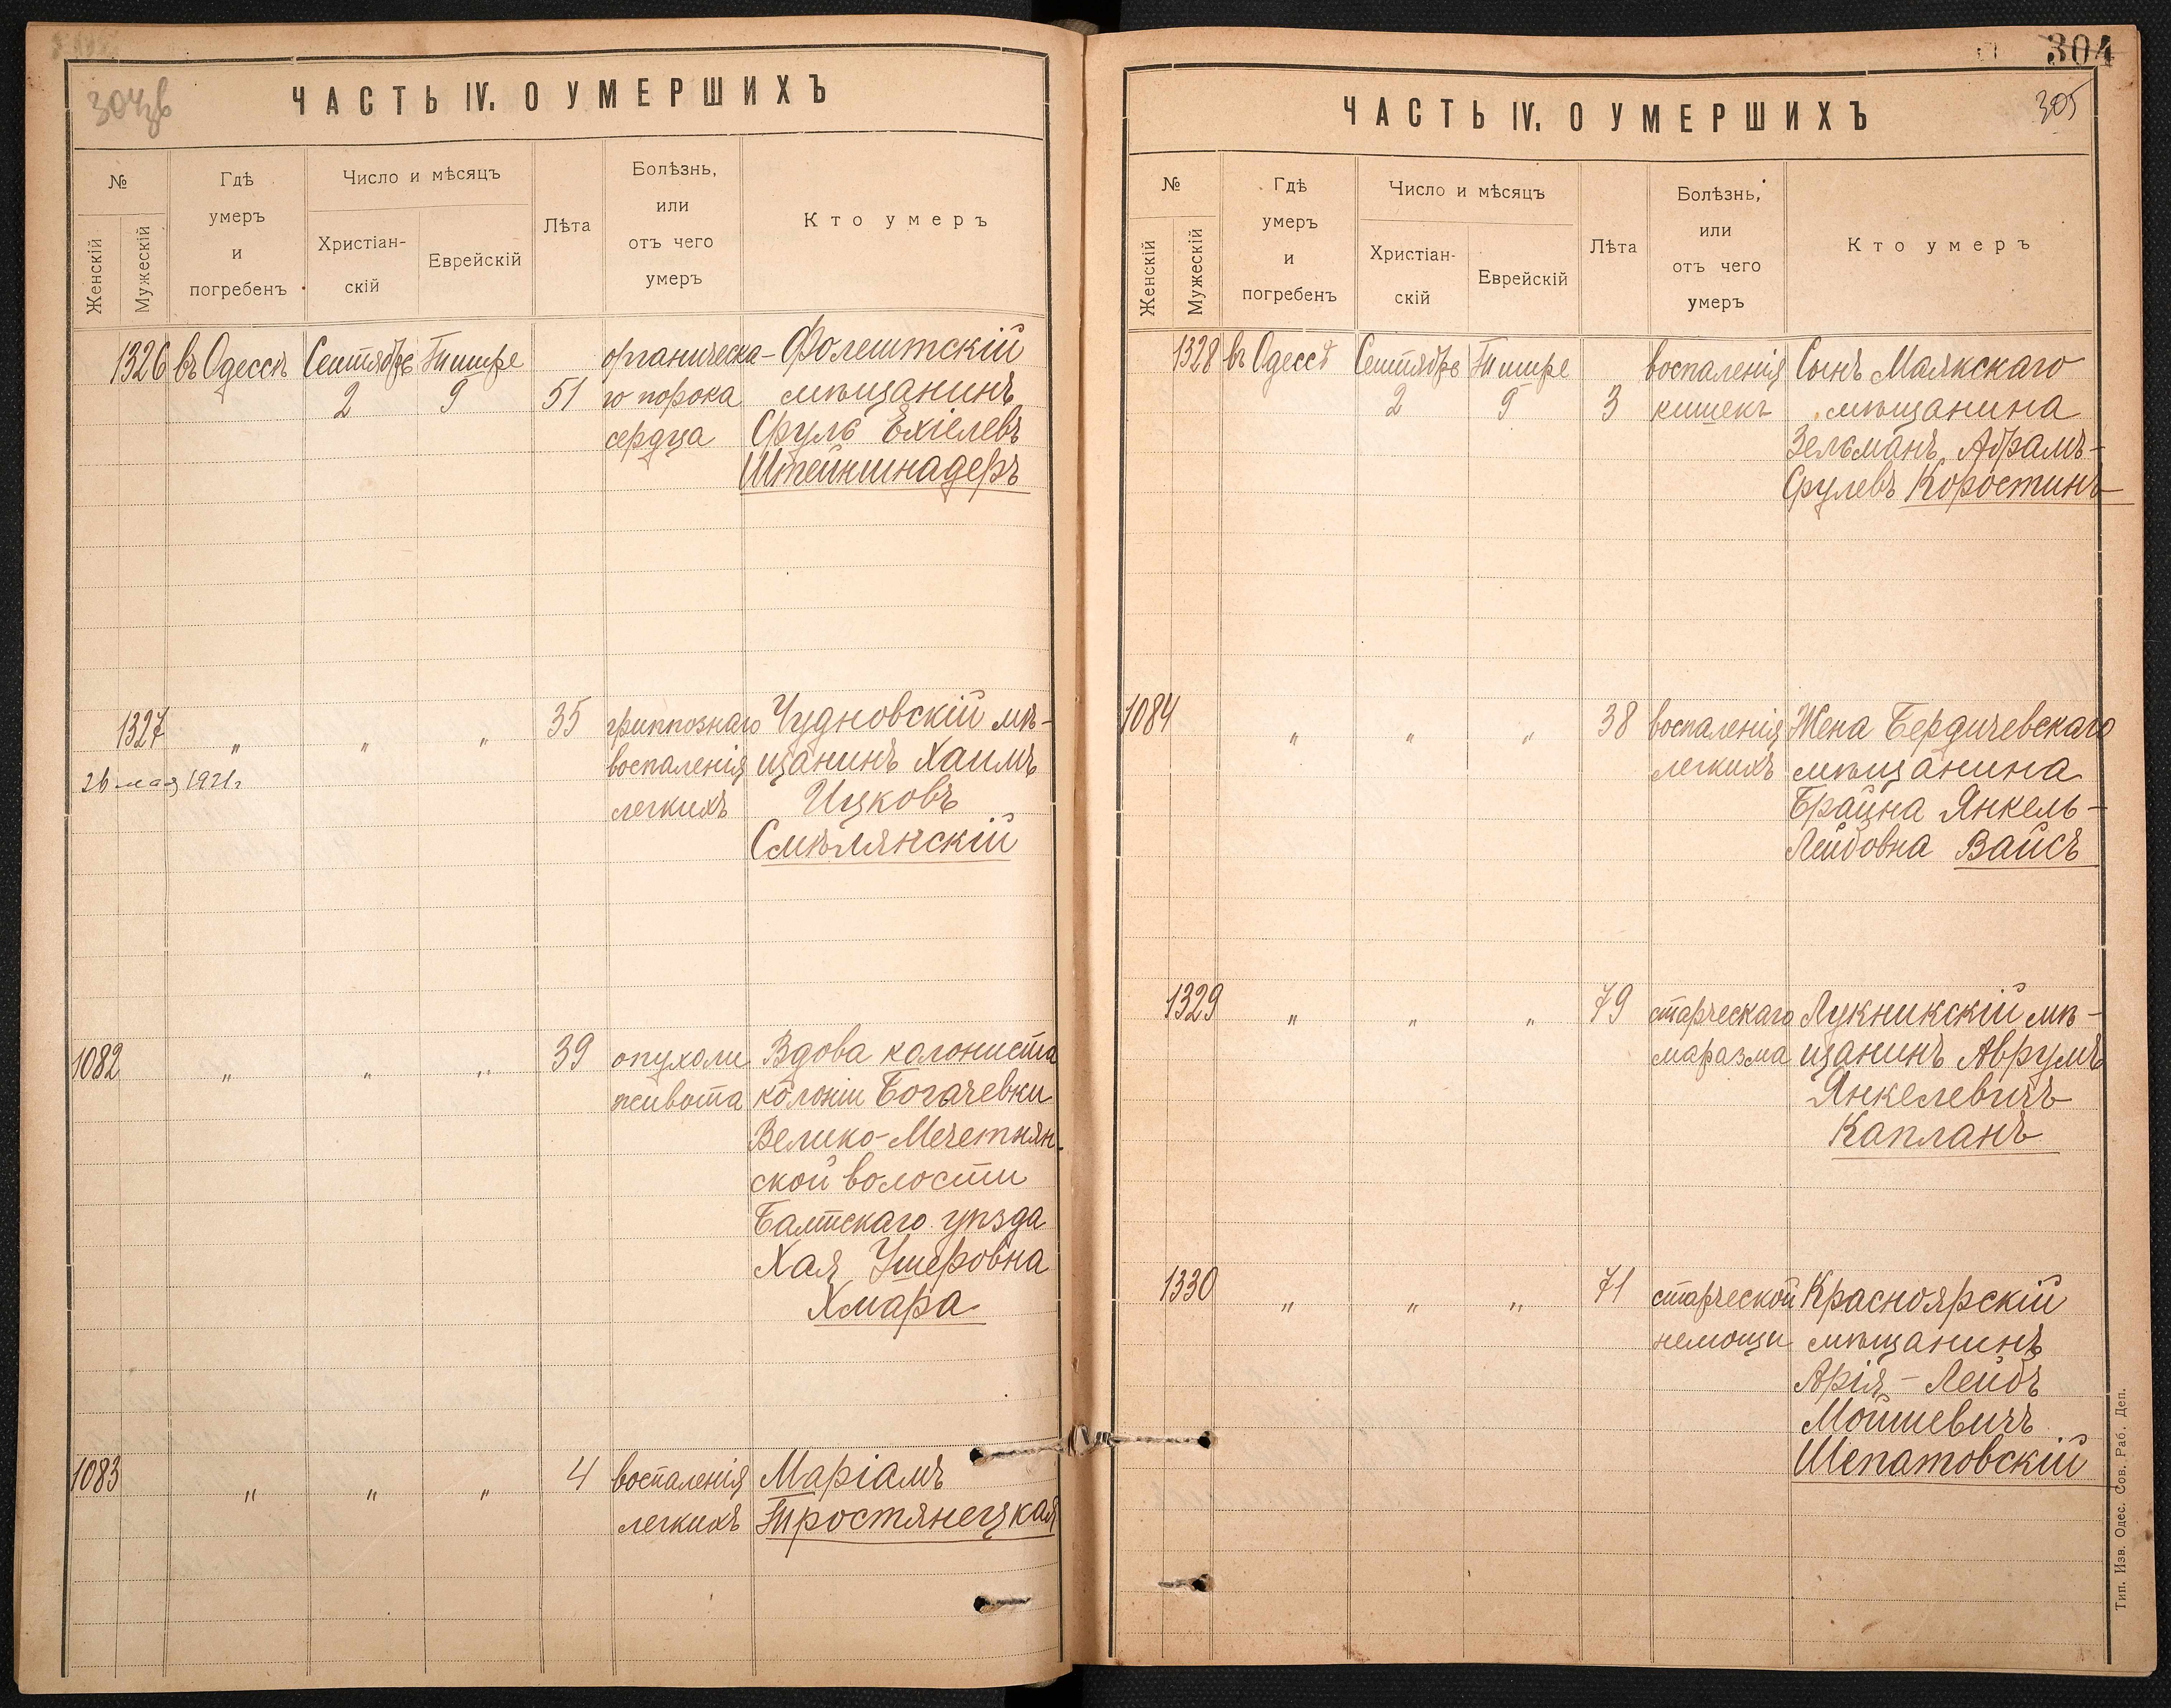 304зв
ЧАСТЬ IV. О УМЕРШИХЪ
№
Женскій
Мужескій
Гдѣ
умеръ
и
погребенъ
Число и мѣсяцъ
Христіан-
скій
Еврейскій
Лѣта
Болѣзнь,
или
отъ чего
умеръ
Кто умеръ
1326 въ Одессѣ Сентябрь Тишре органическа- Фолештскій
2 9 51 го порока мѣщанинъ
сердца Сруль Ехіелевъ
Штейншнадеръ
1327 " " " 35 гриппознаго Чудновскій мѣ-
26 мая 1921 г воспаленія щанинъ Хаимъ
легкихъ Ицковъ
Смѣлянскій
1082 " " " 39 опухоли Вдова колониста
живота колоніи Богачевки
Велико-Мечетнян-
ской волости
Балтскаго уѣзда
Хая Ушеровна
Хмара
1083 " " " 4 воспаленія Маріамъ
легкихъ Тростянецкая
304
305
ЧАСТЬ IV. О УМЕРШИХЪ
№
Женскій
Мужескій
Гдѣ
умеръ
и
погребенъ
Число и мѣсяцъ
Христіан-
скій
Еврейскій
Лѣта
Болѣзнь,
или
отъ чего
умеръ
Кто умеръ
1328 въ Одессѣ Сентябрь Тишре воспаленія Сынъ Маякскаго
2 9 3 кишекъ мѣщанина
Зельманъ Абрамъ-
Срулевъ Коростинъ
1084 " " " 38 воспаленія Жена Бердичевскаго
легкихъ мѣщанина
Брайна Янкель-
Лейбовна Вайсъ
1329 " " " 79 старческаго Лукникскій мѣ-
маразма щанинъ Аврумъ
Янкелевичъ
Капланъ
1330 " " " 71 старческой Красноярскій
немощи мѣщанинъ
Арія-Лейбъ
Мойшевичъ
Шепатовскій
Тип. Изв. Одес. Сов. Раб. Деп.